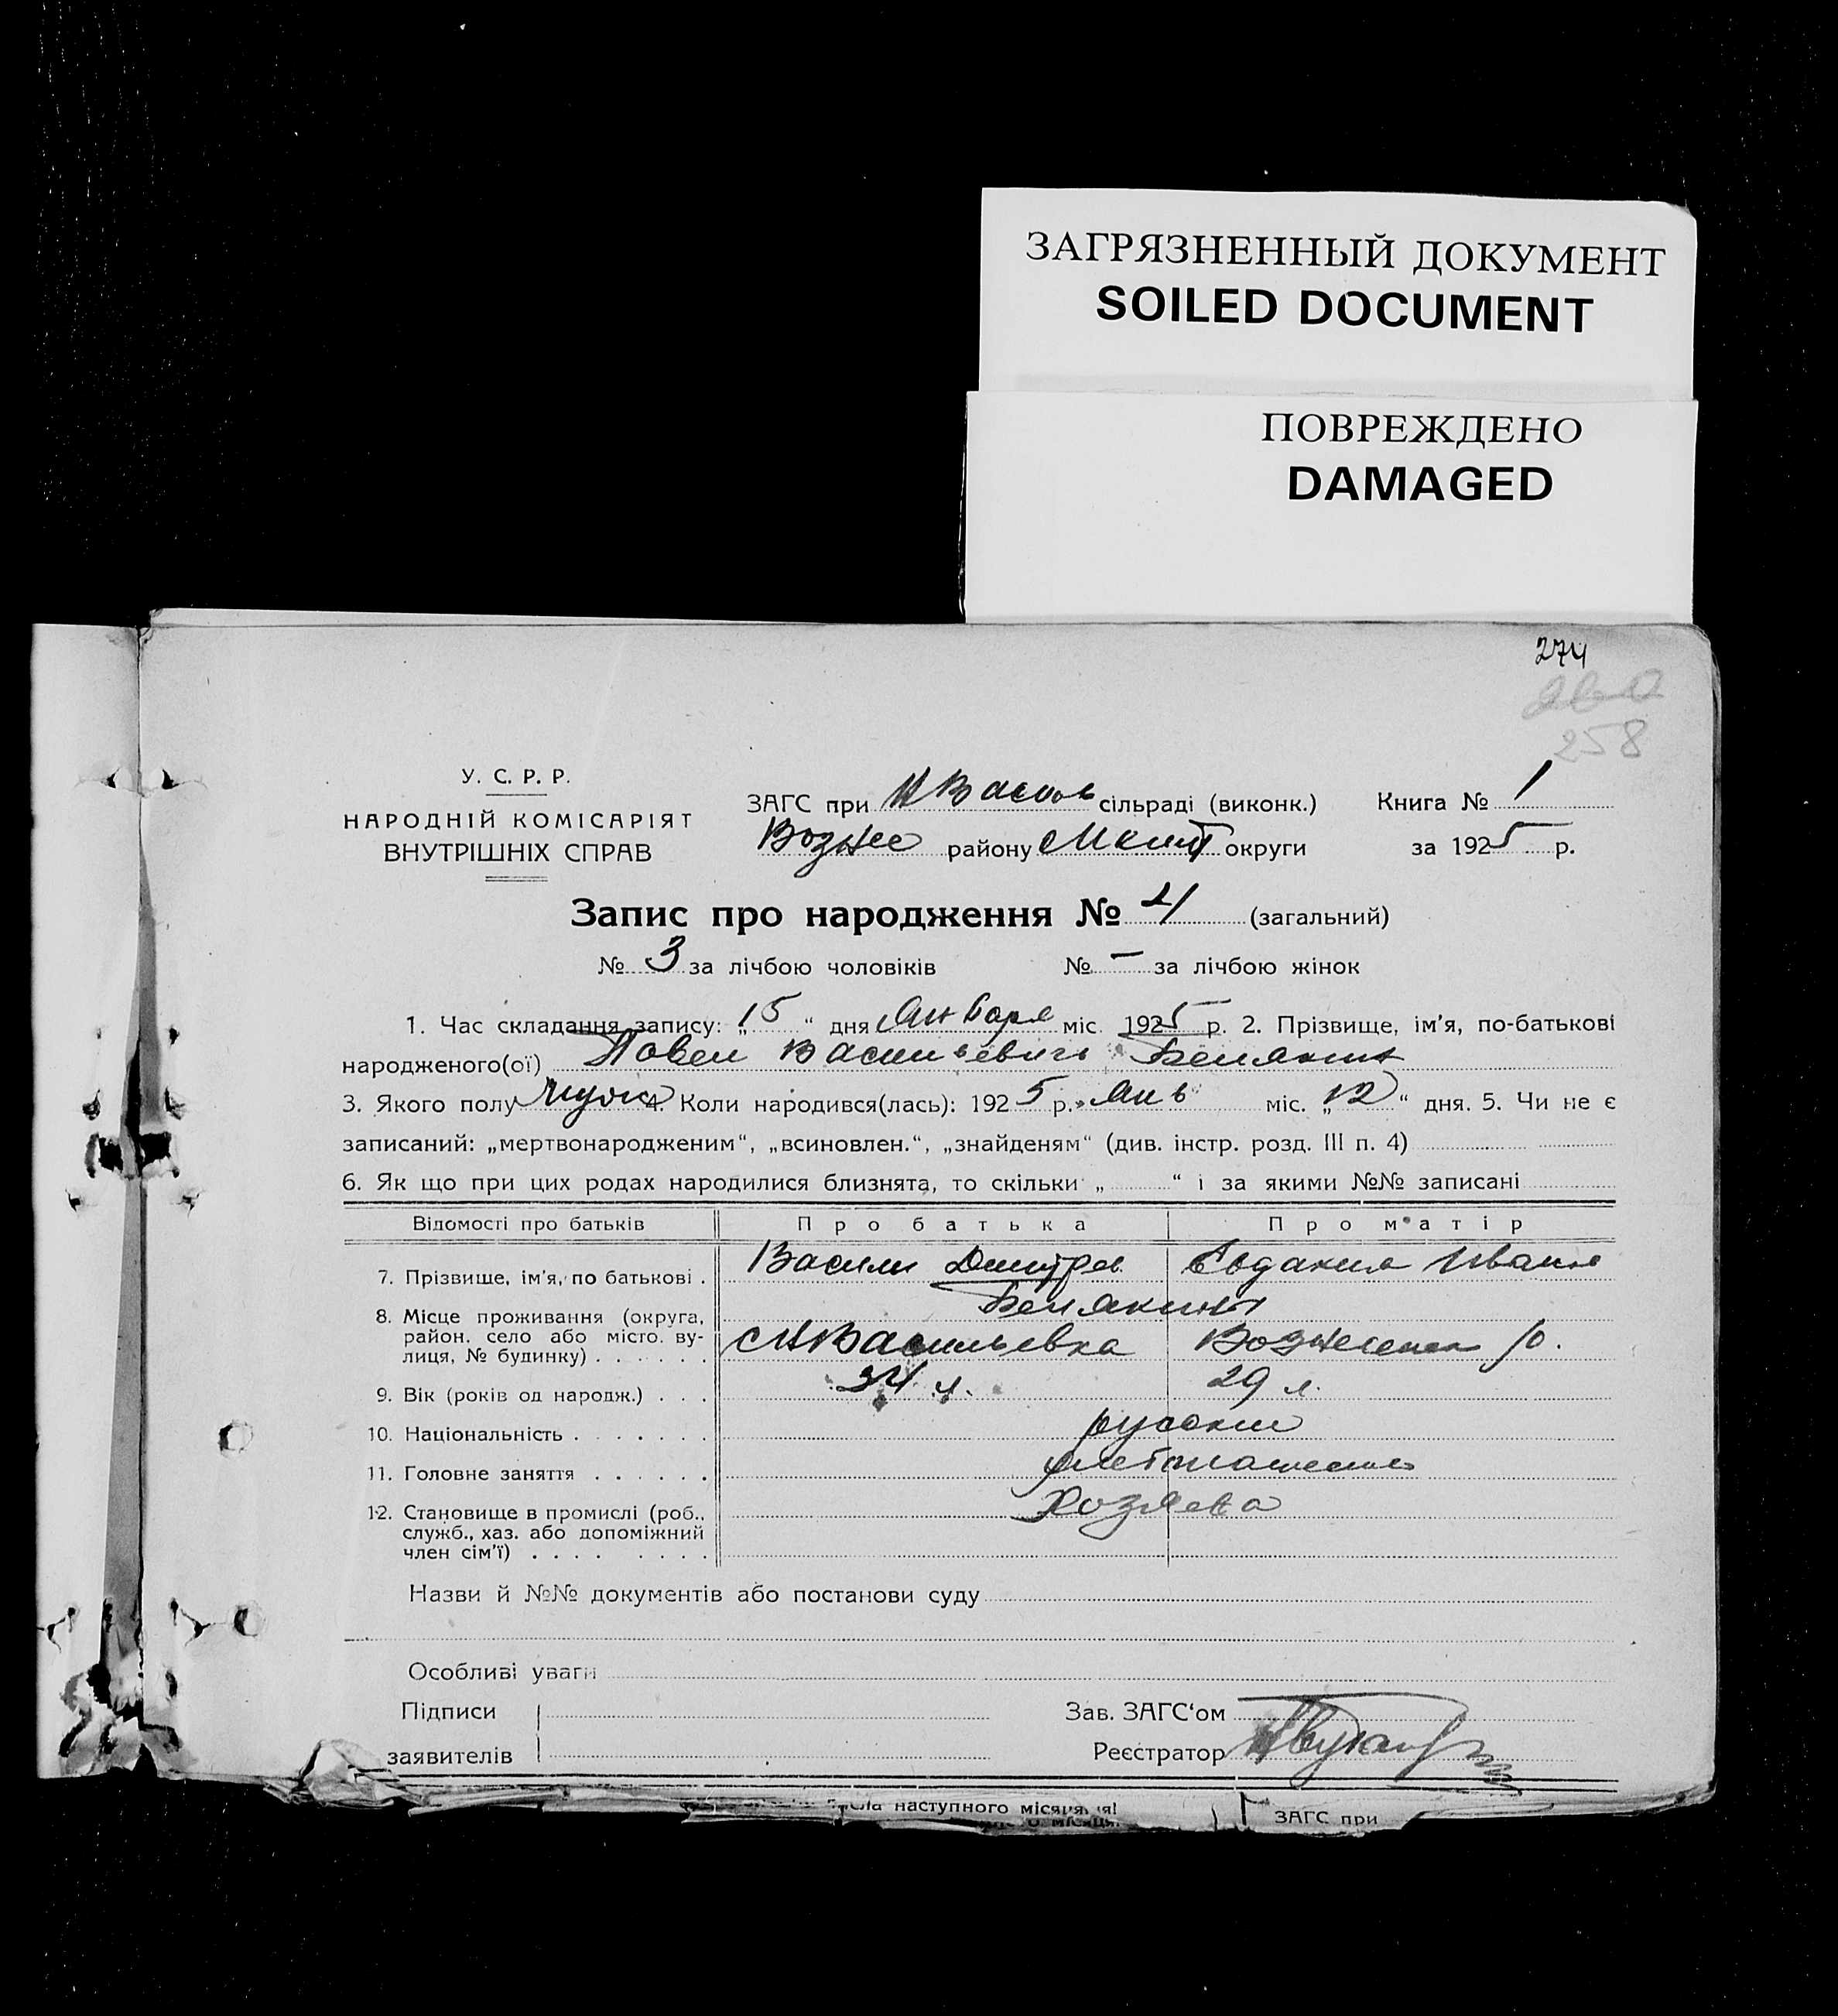 ЗАГРЯЗНЕННЫЙ ДОКУМЕНТ
SOILED DOCUMENT
ПОВРЕЖДЕНО
DAMAGED
274
258
У. С. Р. Р.
НАРОДНІЙ КОМІСАРІЯТ
ВНУТРІШНІХ СПРАВ
ЗАГС при Н Васил сільраді (виконк.) Книга № 1
Возне району округи за 1925 р.
Запис про народження № 4 (загальний)
№ 3 за лічбою чоловіків № – за лічбою жінок
1. Час складання запису: „15“ дня Января міс. 1925 р. 2. Прізвище, ім'я, по-батькові
народженого(ої) Павел Васильевичь Белякин
3. Якого полу Муж 4. Коли народився(лась): 1925 р. Янв міс. „12“ дня. 5. Чи не є
записаний: „мертвонародженим“, „всиновлен.“, „знайденям“ (див. інстр. розд. III п. 4)
6. Як що при цих родах народилися близнята, то скільки „ “ і за якими №№ записані
Відомості про батьків Про батька Про матір
7. Прізвище, ім'я, по батькові . Васили Дмитрев Евдакия Иванов
Белякины
8. Місце проживання (округа,
район. село або місто. ву-
лиця, № будинку) . . . . . . с Н Васильевка р.
9. Вік (років од народж.) . . . 34 л. 29 л.
10. Національність . . . . . . . русские
11. Головне заняття . . . . . .
12. Становище в промислі (роб.. Хозяева
служб., хаз. або допоміжний
член сім'ї) . . . . . . . .
Назви й №№ документів або постанови суду
Особливі уваги
Підписи
заявителів
Зав. ЗАГС'ом
Реєстратор
наступного місяця
місяця.
ЗАГС при